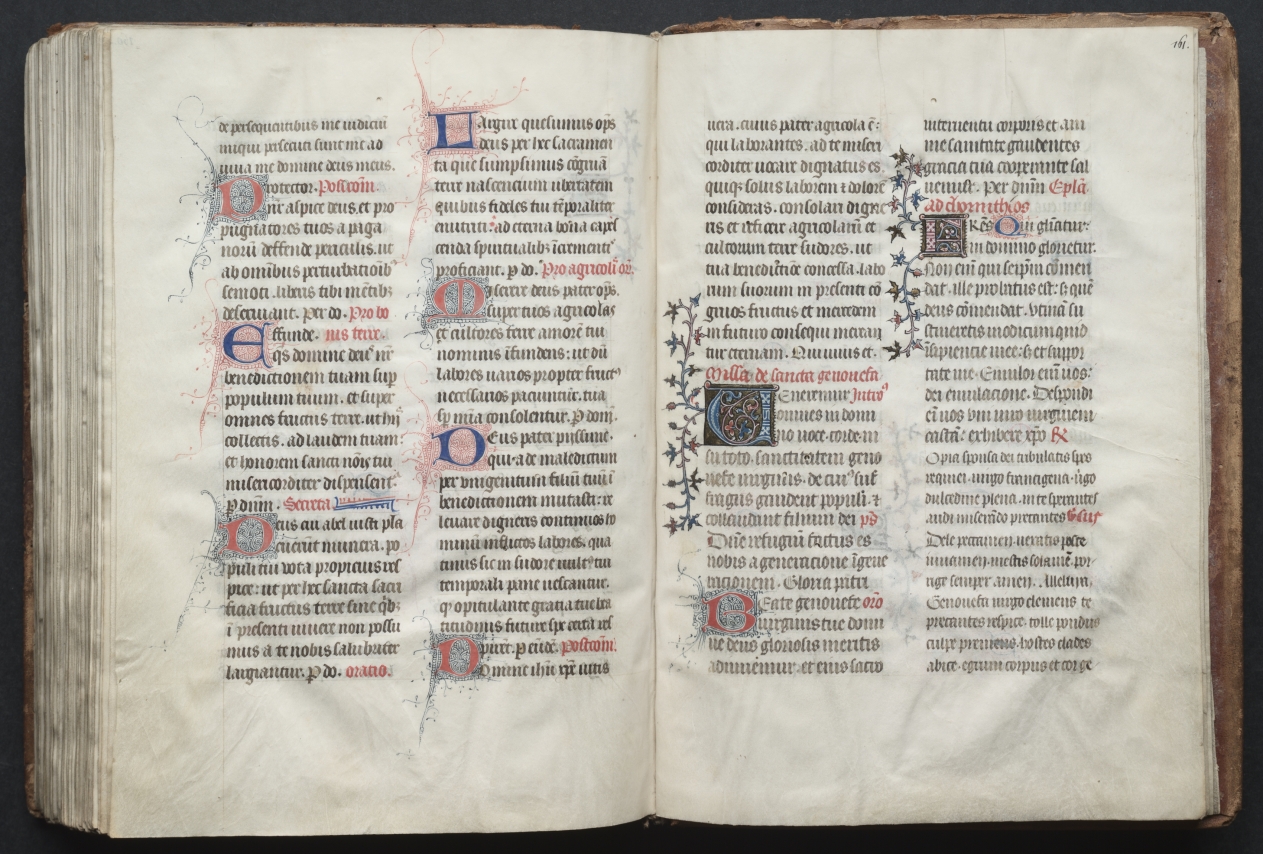 de persequentibus me iudicium
iniqui persecuti sunt me ad
iuua me domine deus meus.
Protector. Postcom̄.
Dne aspice deus. et pro
pugnatores tuos a paga
norū deffende periculis. ut
ab omnibus perturbationib
semoti. liberis tibi mētib
deseruiant. Per do. Pro bo
Effunde. nis terre.
qs domine deus nr̄
benedictionem tuam sup
populum tuum. et super
omnes fructus terre. ut hij
collectis. ad laudem tuam
et honorem sancti nōis tui
misericorditer dispensent.
P dnm. Secreta
Deus cui abel iusti pla
cuerunt munera. po
puli tui vota propicius res
pice: ut per hec sancta sacri
ficia fructus terre sine qb
i presenti uiuere non possu
mus a te nobis salubriter
largiantur. P do. oratio.
Largire quesumus ops
deus per hec sacramen
ta que sumpsimus cōgruā
terre nascentium ubertatem
quibus fideles tui tēporaliter
enutriti: ad eterna bona capes
cenda spiritualib īcrementis
proficiant. P do. Pro agricolis or.
Miserere deus pater ops.
super tuos agricolas
et cultores terre amorē tui
nominis īfundens: ut dū
labores uarios propter fruct
necessarios paciuntur. tua
sp mīa consolentur. P dom.
Deus pater piissime.
qui. a de maledictum
per unigenitum filiū tuū ī
benedictionem mutasti: re
leuare digneris continuos ho
minū infelices labores. qua
tinus sic in sudore uultus tui
temporali pane uescantur.
q opitulante gratia tue bea
titudinis future spe certa res
pirent. P eūdē. Postcom̄.
Domine ihū xpe uitis
uera. cuius pater agricola ē:
qui laborantes. ad te miseri
corditer uocare dignatus es.
quiq; solus laborem ī dolorē
consideras. consolari digne
ris et reficere agricolarū et
cultorum terre sudores. ut
tua benedictiōe concessa. labo
rum suorum in presenti co
gruos fructus et mercedem
in futuro consequi merean
tur eternam. Qui uiuis et.
Missa de sancta genouefa
Eneremur Introi
omnes in domi
no uoce. corde. in
su toto. sanctitatem geno
uefe uirginis. de cui sus
fragiis gaudent populi. et
collaudant filium dei ps
Dne refugiū factus es
nobis a generatione īgene
rationem. Gloria patri
Beate genouefe oro
uirginis tue domi
ne deus gloriosis meritis
adiuuemur. et eius sacro
interuentu corporis et ani
me sanitate gaudentes
gratia tua cooperante sal
uemur. Per dnm Epla
ad chorinthios
Res. Qui gliatur:
in domino glorietur.
Non eni qui seipm cōmen
dat. ille probatus est: s quē
deus cōmendat. Vtinā su
stineretis modicum quid
īsipiencie mee: s et suppor
tate me. Emulor eni uos:
dei emulacione. Despondi
ei nos uni uiro uirginem
castā: exhibere xpo R
Opia sponsa dei tribulatis spes
requiei. uirgo francigena. uigo
dulcedine plena. in te sperantes
audi miserādo precantes v̄sus
Dele peccamen. ueniam posce
iuuamen. mestis solamen. por
rige semper amen. Alleluia.
Genouefa uirgo clemens te
precantes respice. tolle pondus
culpe premens. hostes clades
abice. egrum corpus et cor ge
161.